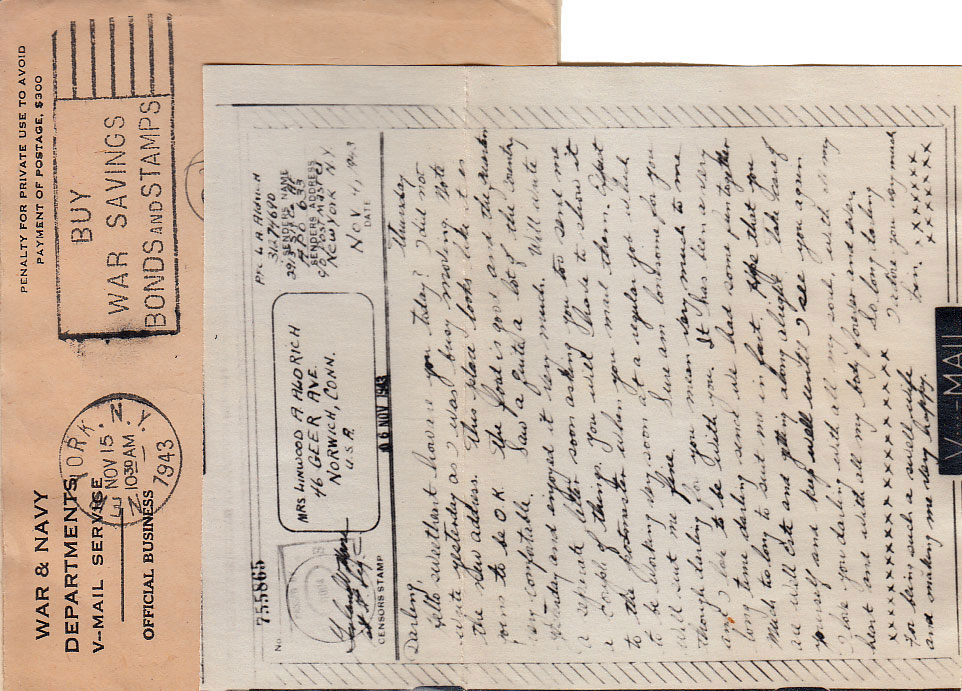 WAR & NAVY
DEPARTMENTS
V--MAIL SERVICE
OFFICIAL BUSINESS
PENALTY FOR PRIVATE USE TO AVOID
PAYMENT OF POSTAGE, $300
YORK, N.Y.
NOV 15
10 30 AM
1943
BUY
WAR SAVINGS
BONDS AND STAMPS
No.
755865
CENSORS STAMP
MRS HINWOOD A ALDRICH
46 GEER AVE.
NORWICH, CONN.
U.S.A
06 NOV 1943
Pfc L A Aldrich
31274690
SENDERS NAME
SENDERS ADDRESS
APO 635
c/o Postmaster
New York N.Y.
Nov 4, 1943
DATE
Thursday
Darling,
Hello sweetheart how are you today? I did not
write yesterday as I was busy moving. Note
the new address. This place looks like it is
going to be O.K. The food is good and the quarters
very comfortable. Saw quite a lot of the country
yesterday and enjoyed it very much. Will write
a separate letter soon asking you too send me
a couple of things. You will have to show it
to the postmaster when you mail them. Expect
to be working very soon at a regular job which
will suit me fine. Sure am lonesome for you
though darling for you mean very much to me
and I love to be with you. It has been a very
long time darling since we had some fun together
much to long to suit me in fact. Hope that you
are well etc and getting along alright. Take care of
yourself and keep well until I see you again
I love you darling with all my soul with all my
heart and with all my body forever and ever.
So long darling
I adore you very much
Lin. xxxxxx
xxxxxx
xxxxxxxxxxxxxxx
For being such a swell wife
and making me very happy
V--MAIL